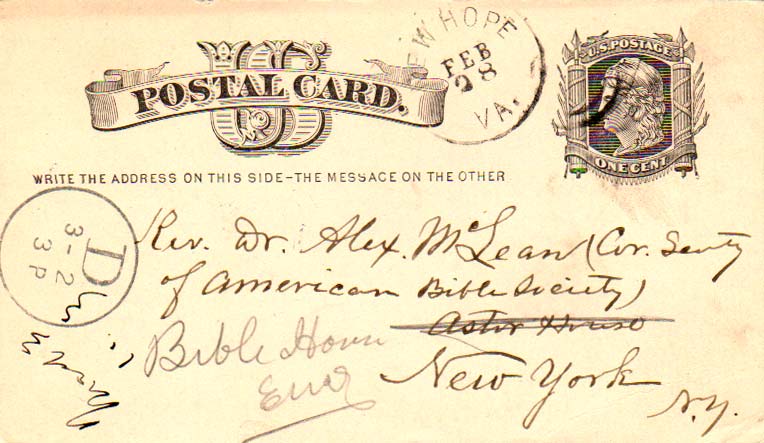 US
POSTAL CARD.
NEW HOPE
FEB
28
VA.
U.S. POSTAGE
ONE CENT
WRITE THE ADDRESS ON THIS SIDE–THE MESSAGE ON THE OTHER
D
3-2
3P
Rev. Dr. Alex. McLean (Cor. Secty
of American Bible Society)
Astor House
Bible House
New York
N.Y.